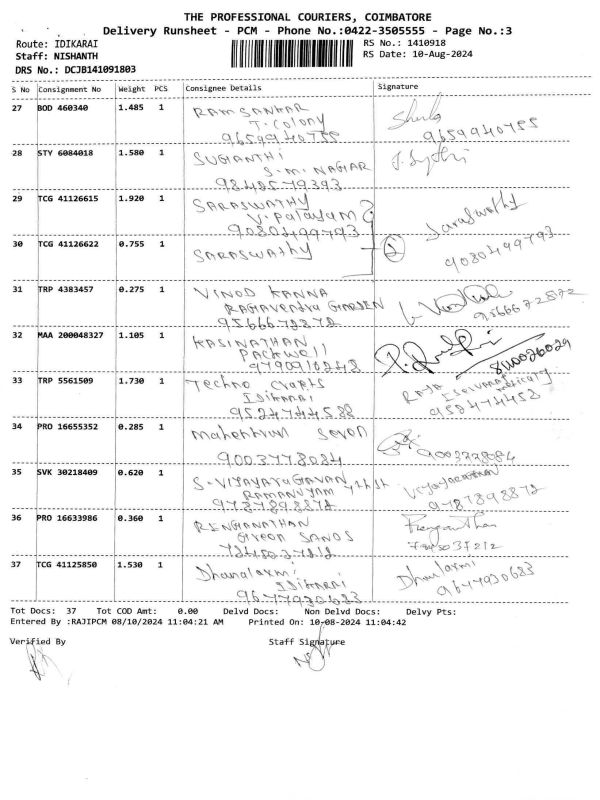 THE PROFESSIONAL COURIERS, COIMBATORE
Delivery Runsheet - PCM - Phone No.:0422-3505555 - Page No.:3
Route: IDIKARAI
RS No.: 1410918
Staff: NISHANTH
RS Date: 10-Aug-2024
DRS No.: DCJB141091803
S No Consignment No Weight PCS Consignee Details Signature
27 BOD 460340 1.485 1 RAMSANKAR
T. Colony
9659940755 9659940755
28 STY 6084018 1.580 1 SUGANTHI
S.M. NAGAR
9842579393
29 TCG 41126615 1.920 1 SARASWATHY
V. Palayam
9080499793 Saraswathy
30 TCG 41126622 0.755 1 SARASWATHY 2 9080499793
31 TRP 4383457 0.275 1 VINOD KANNA
RAGAVENDRA GARDEN
9566672872 9566672872
32 MAA 200048327 1.105 1 KASINATHAN
PACKWELL
9790910248 8110026029
33 TRP 5561509 1.730 1 Techno Crafts
Idikarai
9524744588 RAJA
9584744453
34 PRO 16655352 0.285 1 Mahendran
9003778084
35 SVK 30218409 0.620 1 S. VIJAYARAGAVAN
9787898872 9787898872
36 PRO 16633986 0.360 1 RENGANATHAN
Green SANDS
7845037212 Renganathan
7845037212
37 TCG 41125850 1.530 1 Dhanalaxmi
Idikarai
9677930683 Dhanalaxmi
9677930683
Tot Docs: 37 Tot COD Amt: 0.00 Delvd Docs: Non Delvd Docs: Delvy Pts:
Entered By :RAJIPCM 08/10/2024 11:04:21 AM Printed On: 10-08-2024 11:04:42
Verified By Staff Signature